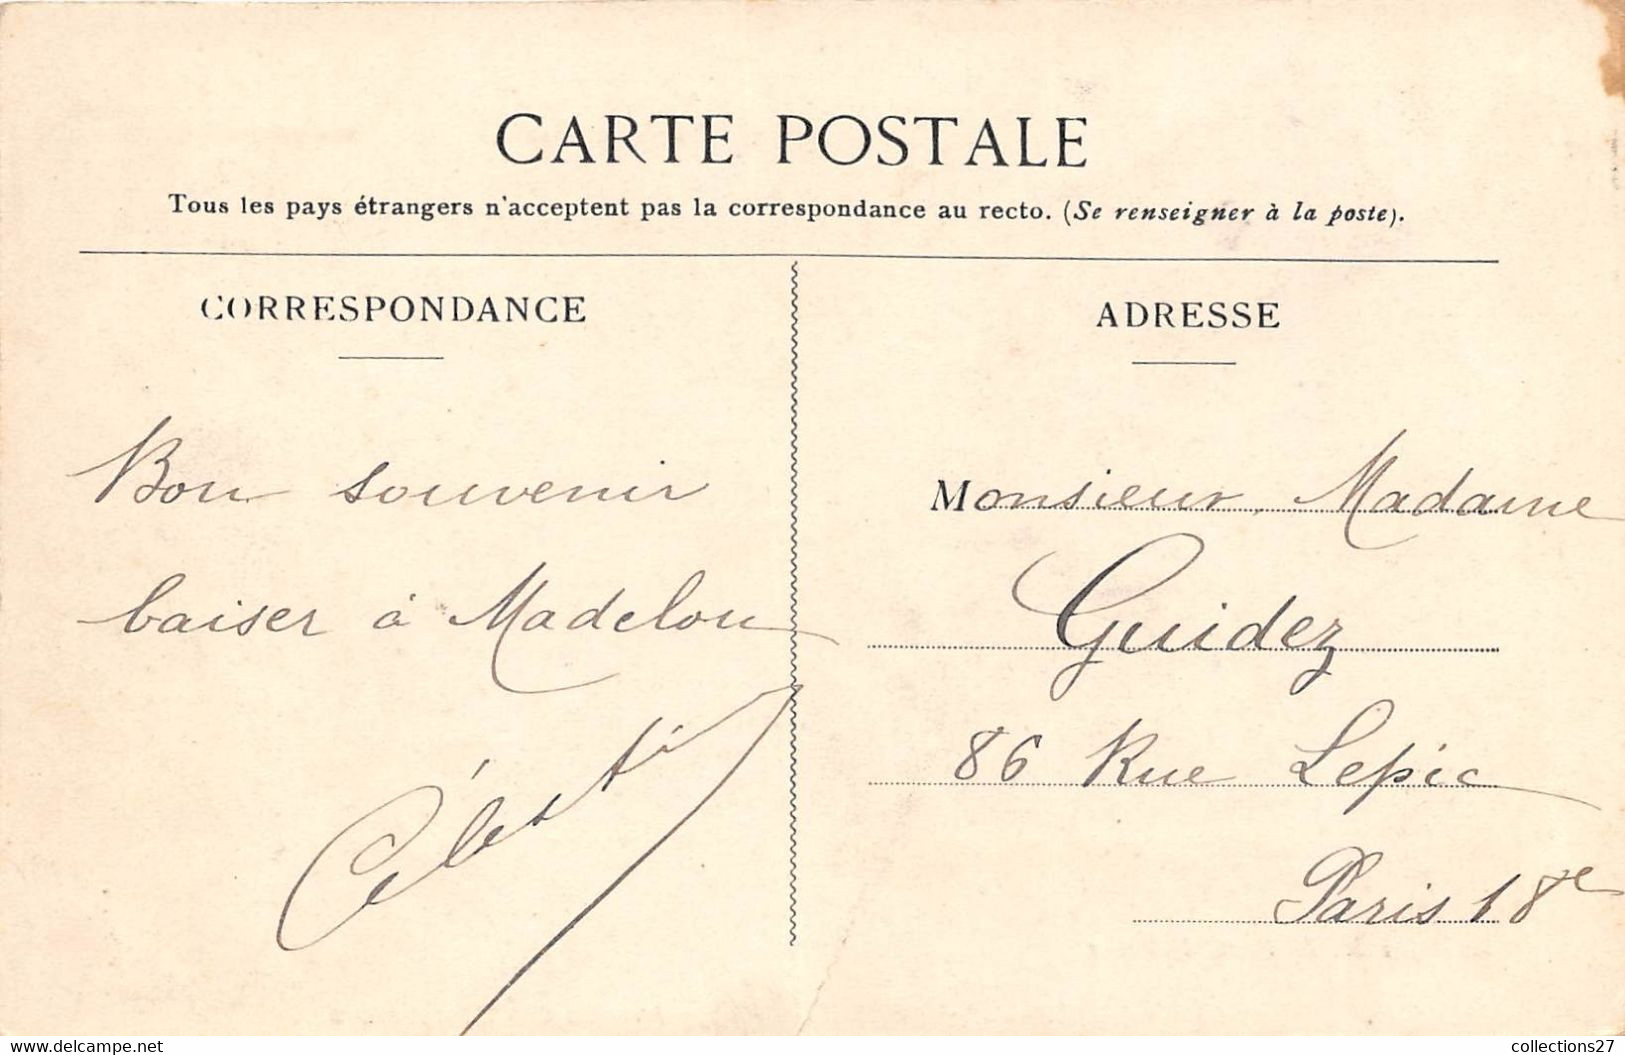 CARTE POSTALE
Tous les pays étrangers n'acceptent pas la correspondance au recto. (Se renseigner à la poste).
CORRESPONDANCE
Bon souvenir
baiser à Madelon
ADRESSE
Monsieur, Madame
Guidez
86 Rue Lepic
Paris 18e
www.delcampe.net
collections27